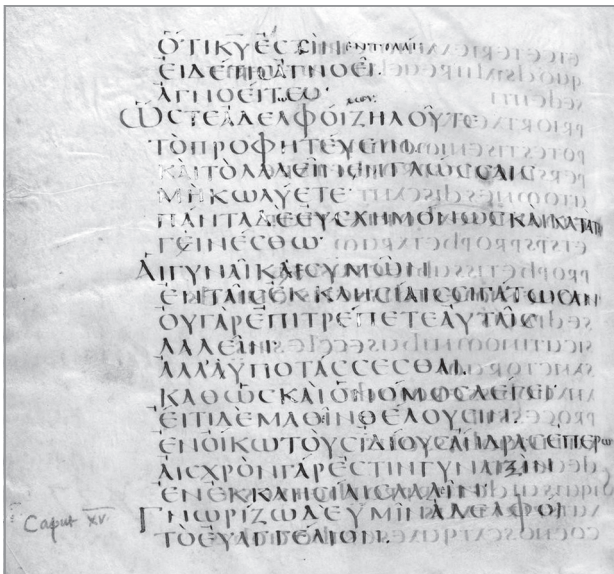 ΟΤΙΚΥΕϹΤΙΝΕΝΤΟΛΗ
ΕΙΔΕΤΙϹΑΓΝΟΕΙ
ΑΓΝΟΕΙΤΕΩ·
ΜΟΥ·
ΩϹΤΕΑΔΕΛΦΟΙΖΗΛΟΥΤΕ
ΤΟΠΡΟΦΗΤΕΥΕΙΝ
ΚΑΙΤΟΛΑΛΕΙΝΕΝΓΛΩϹϹΑΙϹ
ΜΗΚΩΛΥΕΤΕ·
ΠΑΝΤΑΔΕΕΥϹΧΗΜΟΝΩϹΚΑΙΚΑΤΑΤΑΞΙΝ
ΓΕΙΝΕϹΘΩ·
ΑΙΓΥΝΑΙΚΑΙϹΥΜΩΝ
ΕΝΤΑΙϹΕΚΚΛΗϹΙΑΙϹϹΙΓΑΤΩϹΑΝ
ΟΥΓΑΡΕΠΙΤΡΕΠΕΤΕΑΥΤΑΙϹ
ΛΑΛΕΙΝ·
ΑΛΛΑΥΠΟΤΑϹϹΕϹΘΑΙ·
ΚΑΘΩϹΚΑΙΟΝΟΜΟϹΛΕΓΕΙ·
ΕΙΤΙΔΕΜΑΘΙΝΘΕΛΟΥϹΙΝ·
ΕΝΟΙΚΩΤΟΥϹΙΔΙΟΥϹΑΝΔΡΑϹΕΠΕΡΩ
ΑΙϹΧΡΟΝΓΑΡΕϹΤΙΝΓΥΝΑΙΞΙΝ
ΕΝΕΚΚΛΗϹΙΑΙϹΛΑΛΙΝ·
Caput xv. ΓΝΩΡΙΖΩΔΕΥΜΙΝΑΔΕΛΦΟΙ
ΤΟΕΥΑΓΓΕΛΙΟΝ·